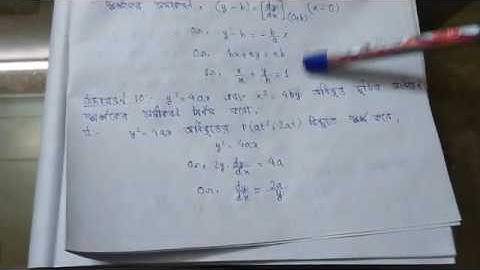 সমীকরণ, (y-h) = [dy/dx](0,h) (x-0)
বা, y-h = -h/a x
বা, hx+ay = ah
বা, x/a + y/h = 1
উদাহরণ 10. y² = 4ax এবং x² = 4by
স্পর্শকের সমীকরণ নির্ণয় করো।
y² = 4ax অধিবৃত্তের P(at², 2at) বিন্দুতে স্পর্শ করে
y² = 4ax
বা, 2y. dy/dx = 4a
বা, dy/dx = 2a/y